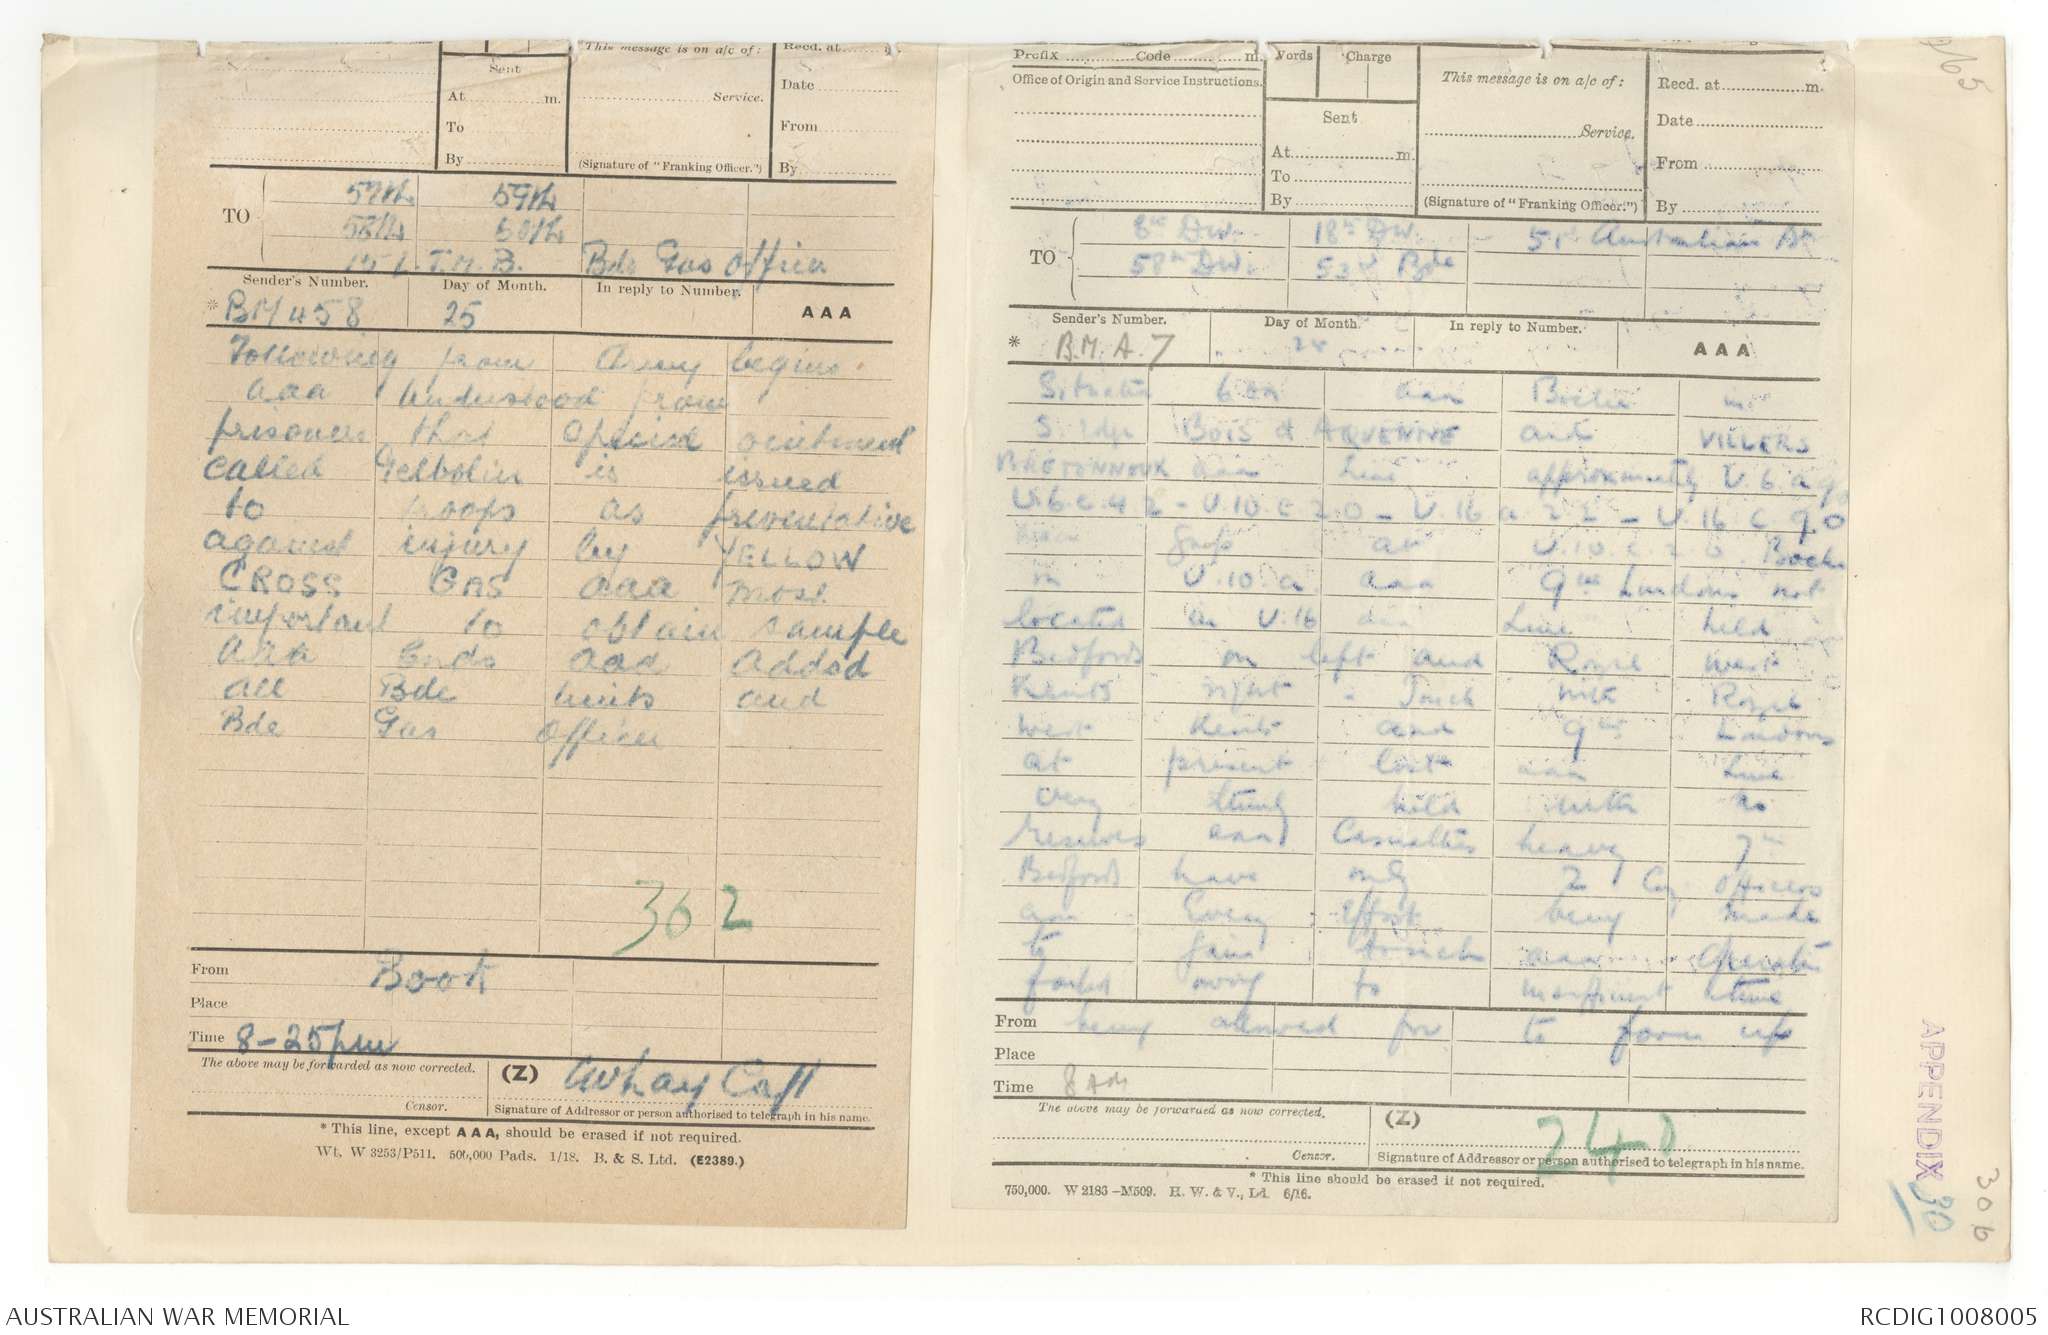 Sent
At
m.
To
By
This message is on a/c of:
Service.
(Signature of "Franking Officer.")
Recd. at
Date
From
By
TO
57th 59th
58th 60th
15 L.T.M.B. Bde Gas Officer
Sender's Number.
Day of Month.
In reply to Number.
AAA
* BM 458 25
Following from Army begins
aaa Understood from
prisoners that special ointment
called Gelbolin is issued
to troops as preventative
against injury by YELLOW
CROSS GAS aaa most
important to obtain sample
AAA Ends aaa Addsd
all Bde units and
Bde Gas Officer
362
From Boot
Place
Time 8-25pm
The above may be forwarded as now corrected.
(Z)
Capt
Censor.
Signature of Addressor or person authorised to telegraph in his name.
* This line, except AAA, should be erased if not required.
Wt. W 3253/P511. 500,000 Pads. 1/18. B. & S. Ltd. (E2389.)
Prefix Code m.
Words Charge
Office of Origin and Service Instructions.
Sent
At m.
To
By
This message is on a/c of:
Service.
(Signature of "Franking Officer.")
Recd. at m.
Date
From
By
TO
8th Div. 18th Div. Australian
58th Div. 53rd Bde
Sender's Number.
Day of Month.
In reply to Number.
AAA
* B.M.A.7 25
Situation 6 am aaa Boche in
S. edge Bois d AQUENNE and VILLERS
BRETONNOUX aaa Line approximately U.6.a.90
U.6.c.4.2 - U.10.c.2.0 - U.16.a.2.2 - U.16.c.9.0
gap at U.10.c.2.0. Boche
in U.10.a aaa 9th Londons not
located in U.16 aaa Line held
Bedfords on left and Royal West
Kents right - Touch with Royal
West Kents and 9th Londons
at present lost aaa Line
very thinly held with no
reserves aaa Casualties heavy 7th
Bedfords have only 2 Coy officers
aaa Every effort being made
to gain touch aaa Operation
failed owing to insufficient time
From being allowed for to form up
Place
Time 8 Am
The above may be forwarded as now corrected.
(Z)
240
Censor.
Signature of Addressor or person authorised to telegraph in his name.
* This line should be erased if not required.
750,000. W 2186-M509. H. W. & V., Ld. 6/16.
APPENDIX 30
306
AUSTRALIAN WAR MEMORIAL
RCDIG1008005